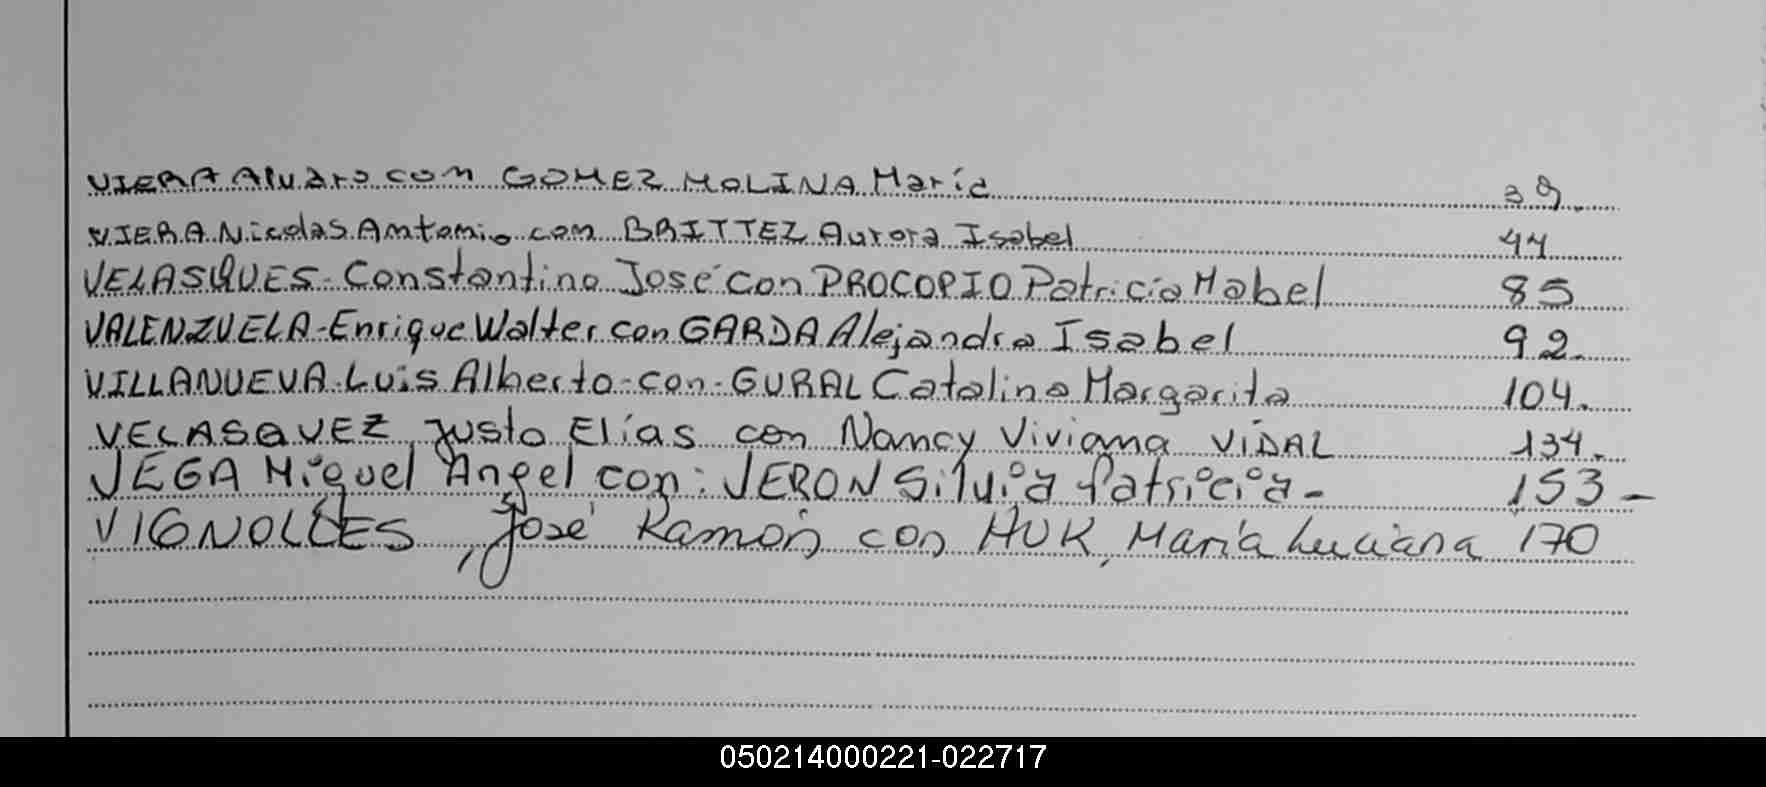 VIERA Alvaro con GOMEZ MOLINA María 39.
VIERA Nicolas Antonio con BRITTEZ Aurora Isabel 44
VELASQUES - Constantino José con PROCOPIO Patricia Mabel 85
VALENZUELA - Enrique Walter con GARDA Alejandra Isabel 92.
VILLANUEVA - Luis Alberto - con - GURAL Catalina Margarita 104.
VELASQUEZ, Justo Elías con Nancy Viviana VIDAL 134.
VEGA Miguel Angel con: VERON Silvia Patricia - 153 -
VIGNOLLES, José Ramón con HUK, María Luciana 170
050214000221-022717